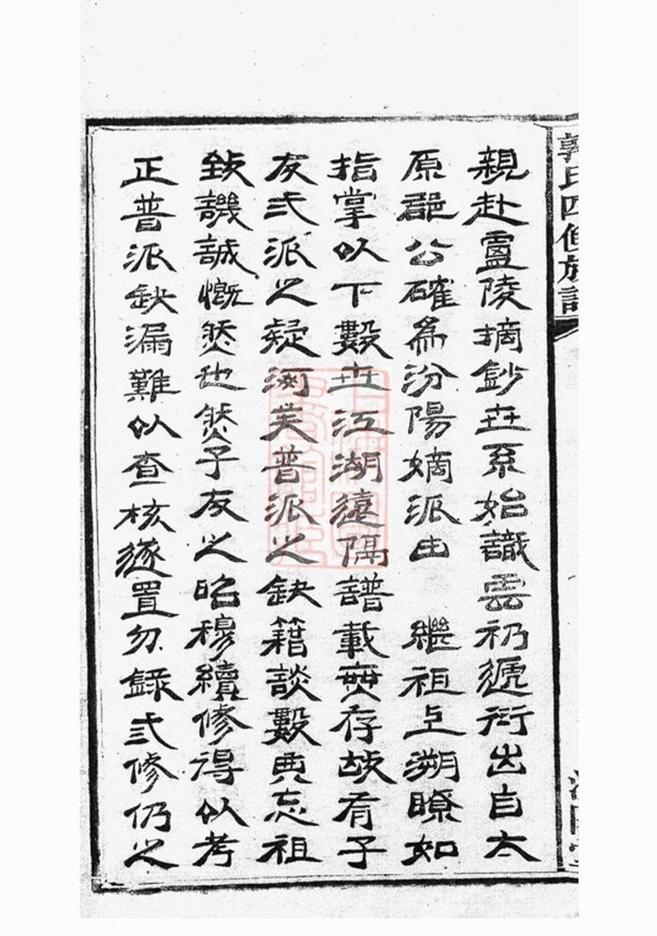 郭氏四修族譜
親赴盧陵摘鈔世系始識雲礽遞衍出自太
原郡公確為汾陽嫡派由　繼祖上溯瞭如
指掌以下數世江湖遠隔譜載無存故有子
友弍派之疑河美普派之缺籍談數典忘祖
致譏誠慨然也然子友之昭穆續修得以考
正普派缺漏難以查核遂置勿錄弍修仍之